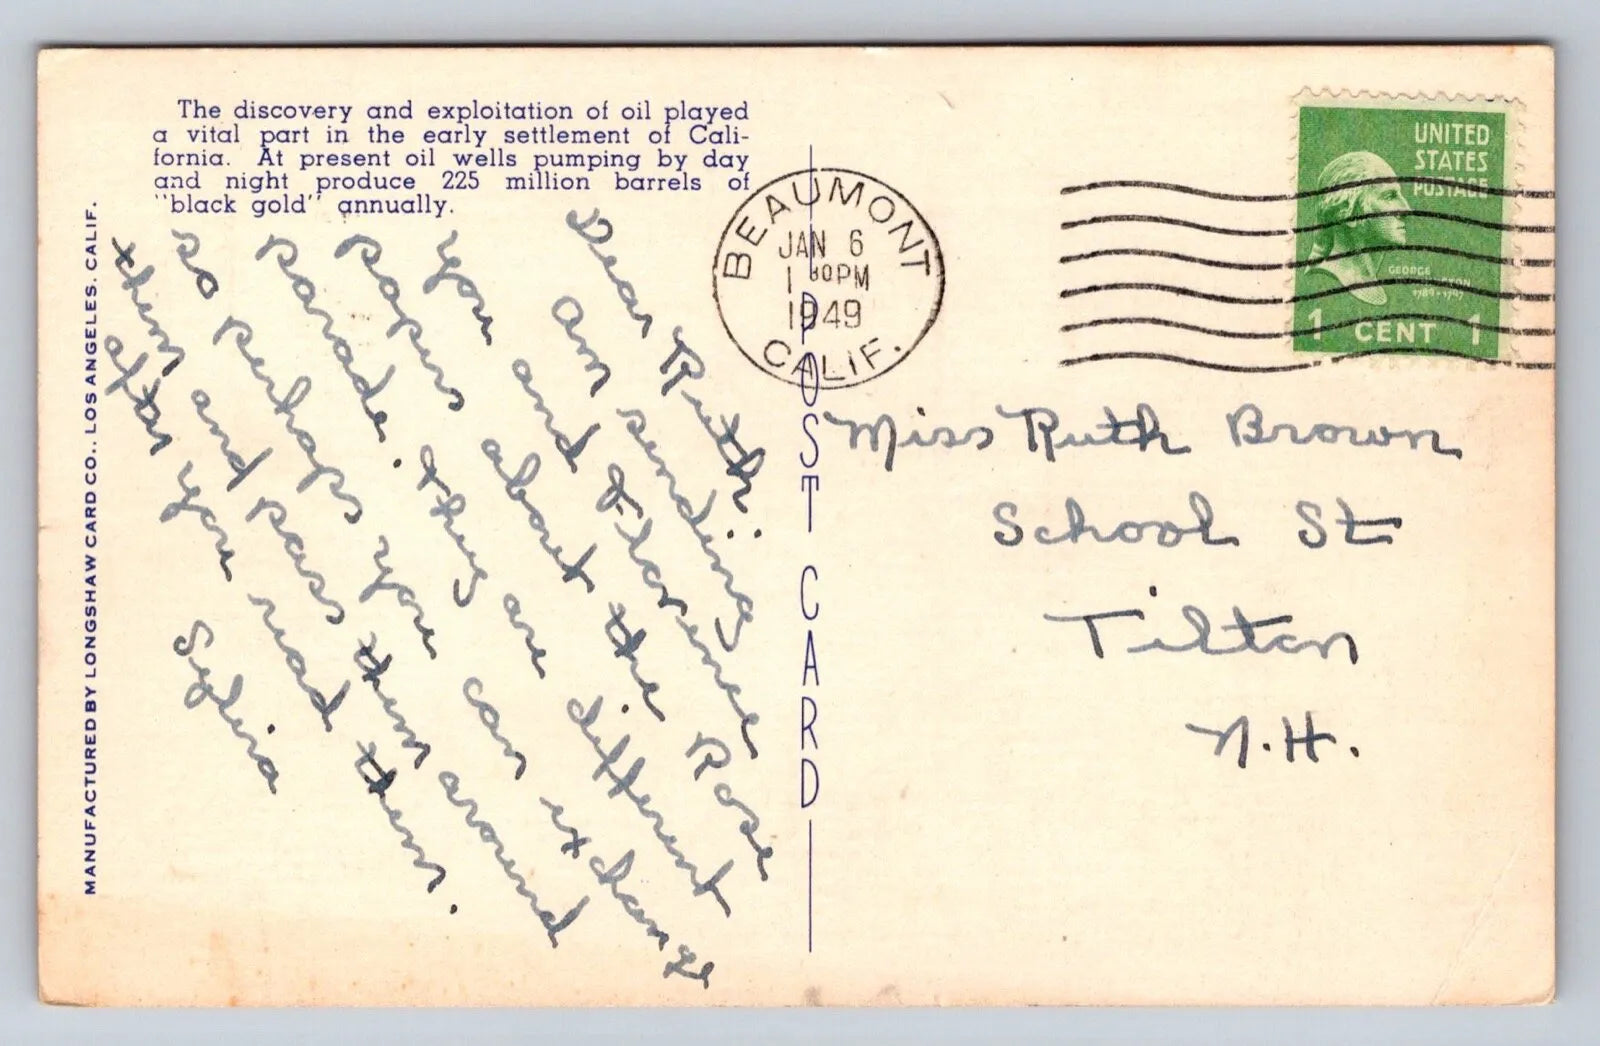 The discovery and exploitation of oil played
a vital part in the early settlement of Cali-
fornia. At present oil wells pumping by day
and night produce 225 million barrels of
"black gold" annually.
MANUFACTURED BY LONGSHAW CARD CO., LOS ANGELES, CALIF.
Dear Ruth:
Am sending
you and Florence
papers about the Rose
parade. They are different
so perhaps you can exchange
them and pass them around
after you read them.
Sylvia
POST CARD
BEAUMONT
JAN 6
1 30 PM
1949
CALIF.
UNITED
STATES
POSTAGE
GEORGE
1789-1797
1 CENT 1
Miss Ruth Brown
School St
Tilton
N.H.